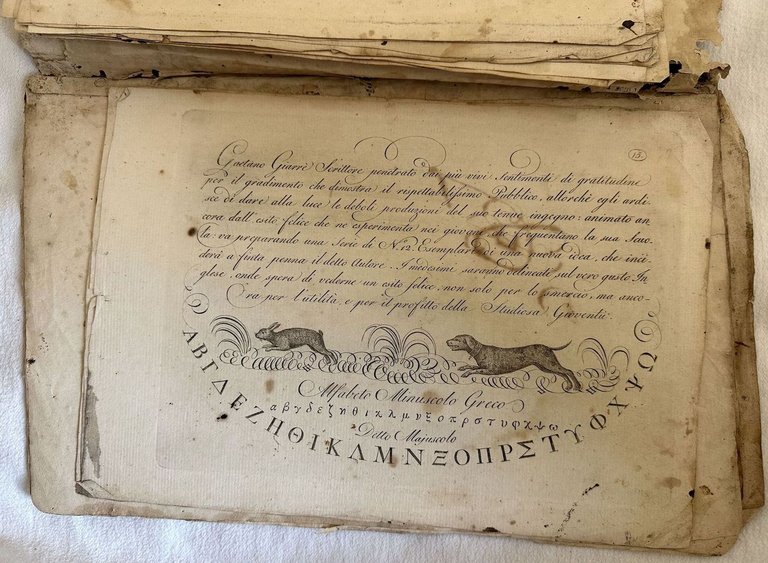 13.
Gaetano Giarrè Scrittore penetrato dai più vivi Sentimenti di gratitudine
per il gradimento che dimostra il rispettabilissimo Pubblico, allorchè egli ardi-
sce di dare alla luce le deboli produzioni del suo tenue ingegno: animato an
cora dall' esito felice che ne esperimenta nei giovani, che frequentano la sua Scuo
la: va preparando una Serie di N.º 12. Esemplari di una nuova idea, che inci-
derà a finta penna il detto Autore. I medesimi saranno delineati sul vero gusto In
glese, onde spera di vederne un esito felice, non solo per lo smercio, ma anco-
ra per l'utilità, e per il profitto della Studiosa Gioventù.
Alfabeto Minuscolo Greco
α β γ δ ε ζ η θ ι κ λ μ ν ξ ο π ρ σ τ υ φ χ ψ ω
Detto Majuscolo
Α Β Γ Δ Ε Ζ Η Θ Ι Κ Λ Μ Ν Ξ Ο Π Ρ Σ Τ Υ Φ Χ Ψ Ω